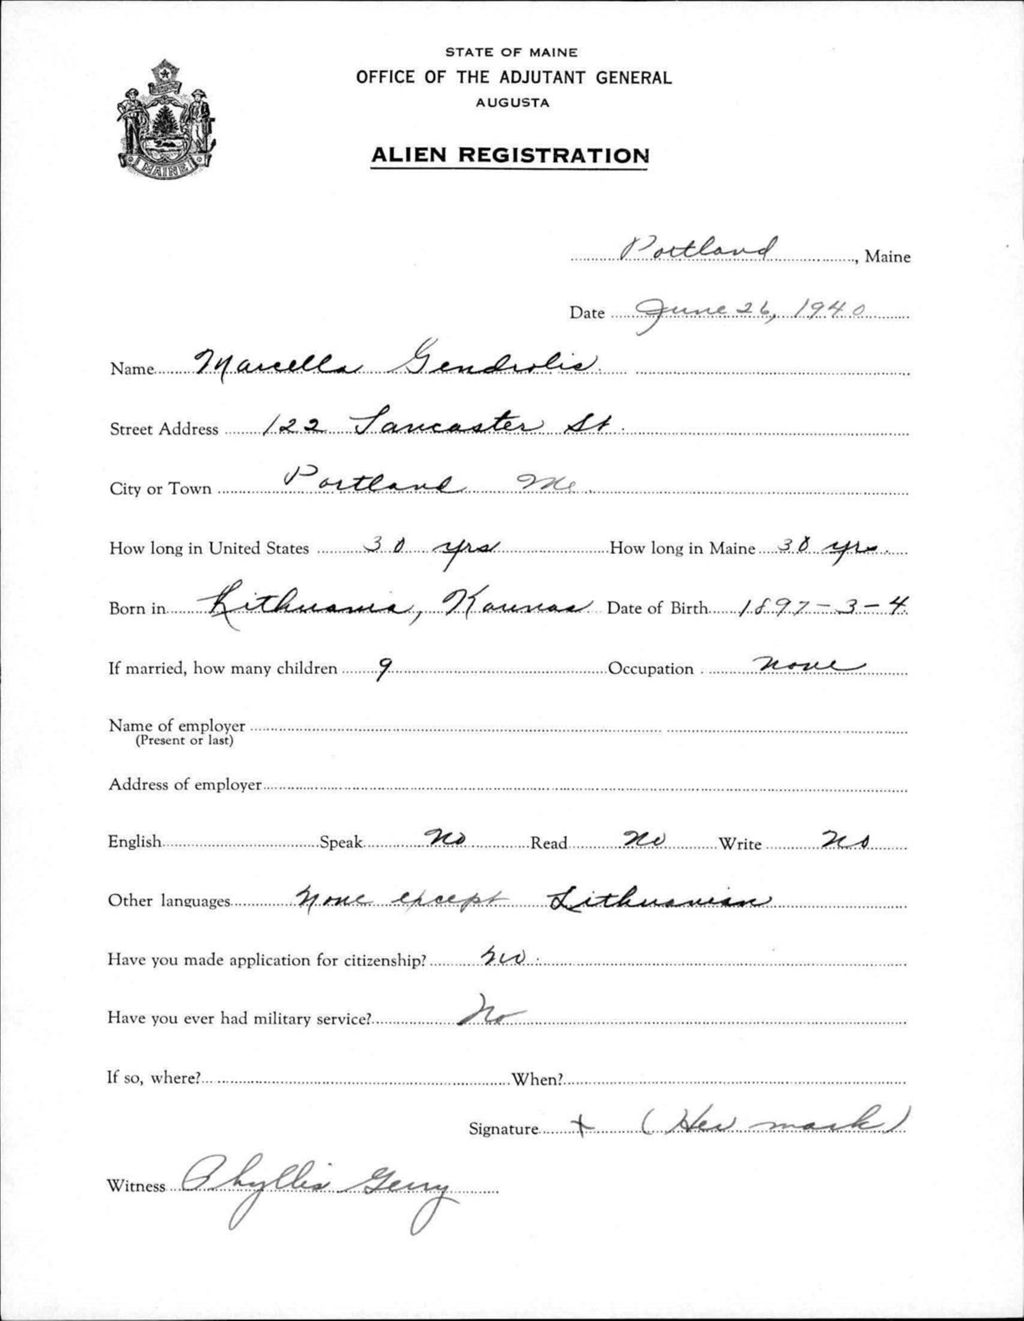 STATE OF MAINE
OFFICE OF THE ADJUTANT GENERAL
AUGUSTA
ALIEN REGISTRATION
MAINE
Portland, Maine
Date June 26, 1940
Name Marcella Gendrolis
Street Address 122 Lancaster St.
City or Town Portland Me.
How long in United States 30 yrs How long in Maine 30 yrs.
Born in Lithuania, Kaunas Date of Birth 1897-3-4
If married, how many children 9 Occupation none
Name of employer
(Present or last)
Address of employer
English Speak No Read No Write No
Other languages None except Lithuanian
Have you made application for citizenship? No.
Have you ever had military service? No
If so, where? When?
Signature + (Her mark)
Witness Phyllis Gerry